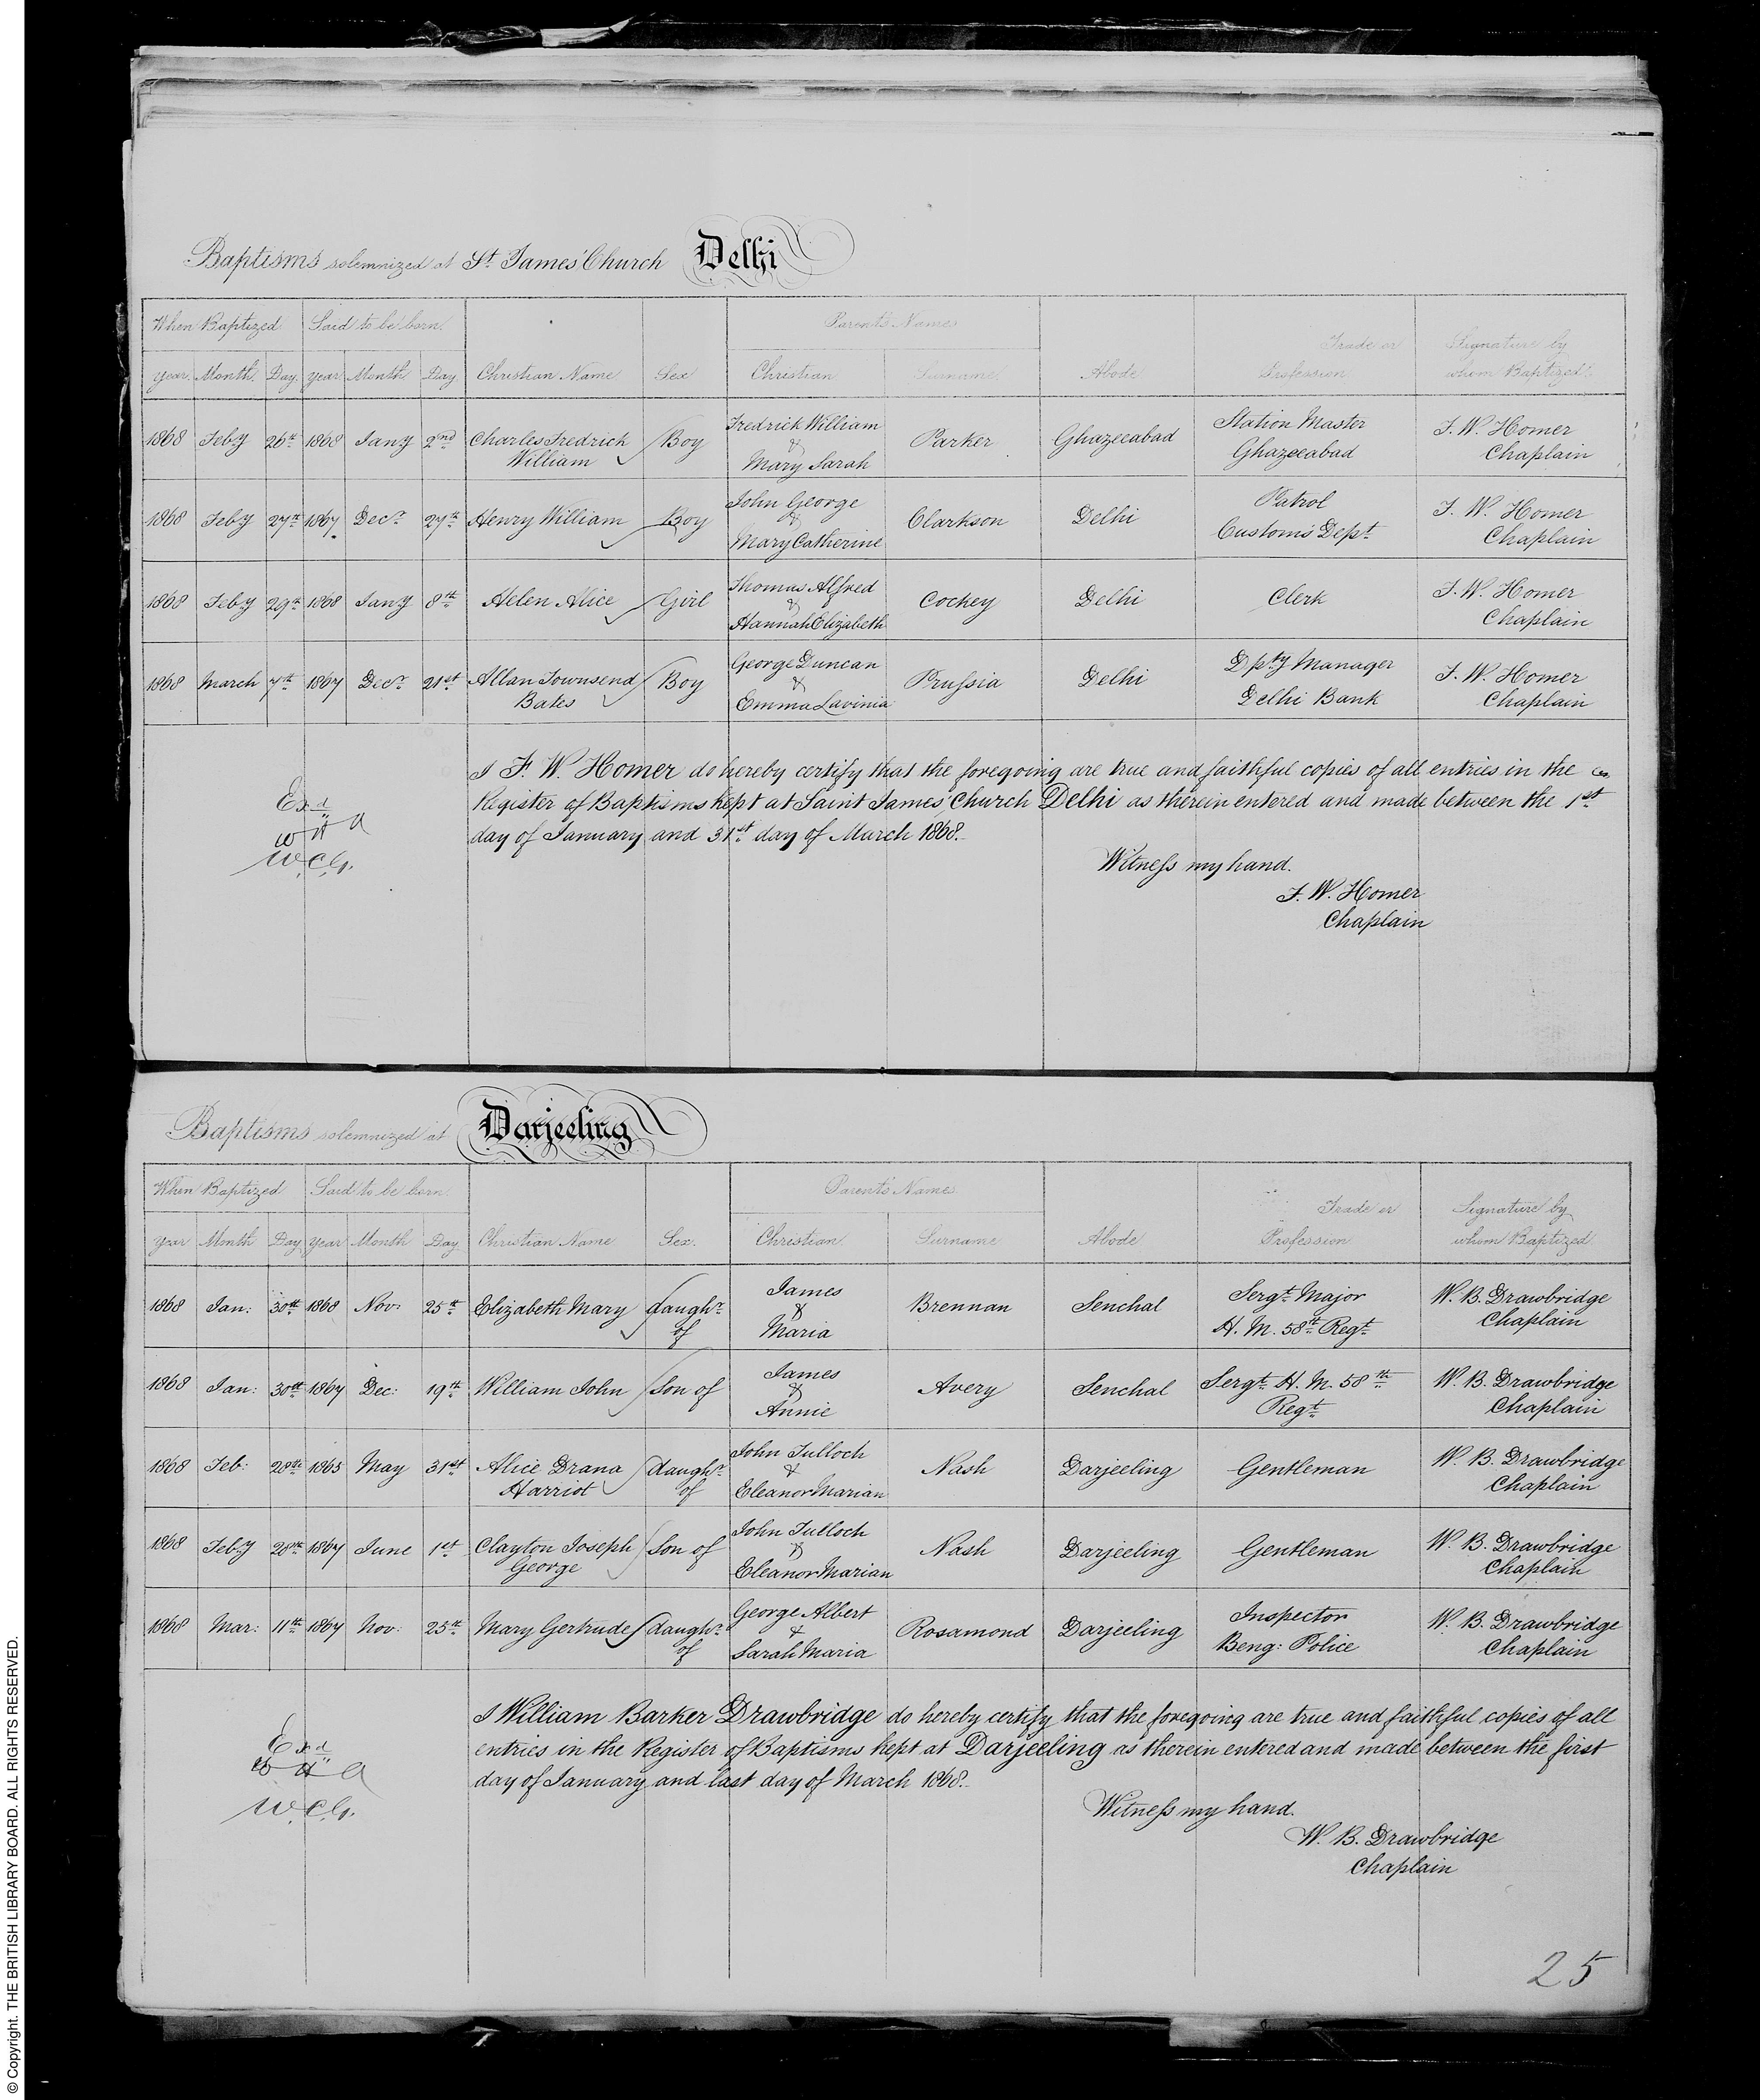 Baptisms solemnized at St. James' Church Delhi
When Baptized Said to be born Parent's Names Trade or Signature by
Year. Month. Day. Year Month Day Christian Name Sex Christian Surname Abode Profession whom Baptized
1868 Feby 26th 1868 Jany 2nd Charles Fredrick William Boy Fredrick William & Mary Sarah Parker Ghazeeabad Station Master Ghazeeabad F. W. Homer Chaplain
1868 Feby 27th 1867 Decr. 27th Henry William Boy John George & Mary Catherine Clarkson Delhi Patrol Customs Dept. F. W. Homer Chaplain
1868 Feby 29th 1868 Jany 8th Helen Alice Girl Thomas Alfred & Hannah Elizabeth Cockey Delhi Clerk F. W. Homer Chaplain
1868 March 7th 1867 Decr. 21st Allan Townsend Bates Boy George Duncan & Emma Lavinia Prussia Delhi Dpty Manager Delhi Bank F. W. Homer Chaplain
I F. W. Homer do hereby certify that the foregoing are true and faithful copies of all entries in the
Register of Baptisms kept at Saint James' Church Delhi as therein entered and made between the 1st
day of January and 31st day of March 1868.
Exd
W.C.G.
Witness my hand.
F. W. Homer
Chaplain
Baptisms solemnized at Darjeeling
When Baptized Said to be born Parent's Names Trade or Signature by
Year Month Day Year Month Day Christian Name Sex. Christian Surname Abode Profession whom Baptized
1868 Jan: 30th 1868 Nov: 25th Elizabeth Mary daughr. of James & Maria Brennan Senchal Sergt. Major H. M. 58th Regt. W. B. Drawbridge Chaplain
1868 Jan: 30th 1867 Dec: 19th William John Son of James & Annie Avery Senchal Sergt. H. M. 58th Regt. W. B. Drawbridge Chaplain
1868 Feb: 28th 1865 May 31st Alice Drana Harriot daughr. of John Tulloch & Eleanor Marian Nash Darjeeling Gentleman W. B. Drawbridge Chaplain
1868 Feby 28th 1867 June 1st Clayton Joseph George Son of John Tulloch & Eleanor Marian Nash Darjeeling Gentleman W. B. Drawbridge Chaplain
1868 Mar: 11th 1867 Nov: 25th Mary Gertrude daughr. of George Albert & Sarah Maria Rosamond Darjeeling Inspector Beng: Police W. B. Drawbridge Chaplain
I William Barker Drawbridge do hereby certify that the foregoing are true and faithful copies of all
entries in the Register of Baptisms kept at Darjeeling as therein entered and made between the first
day of January and last day of March 1868.
Exd
W.C.G.
Witness my hand.
W. B. Drawbridge
Chaplain
25
© Copyright. THE BRITISH LIBRARY BOARD. ALL RIGHTS RESERVED.